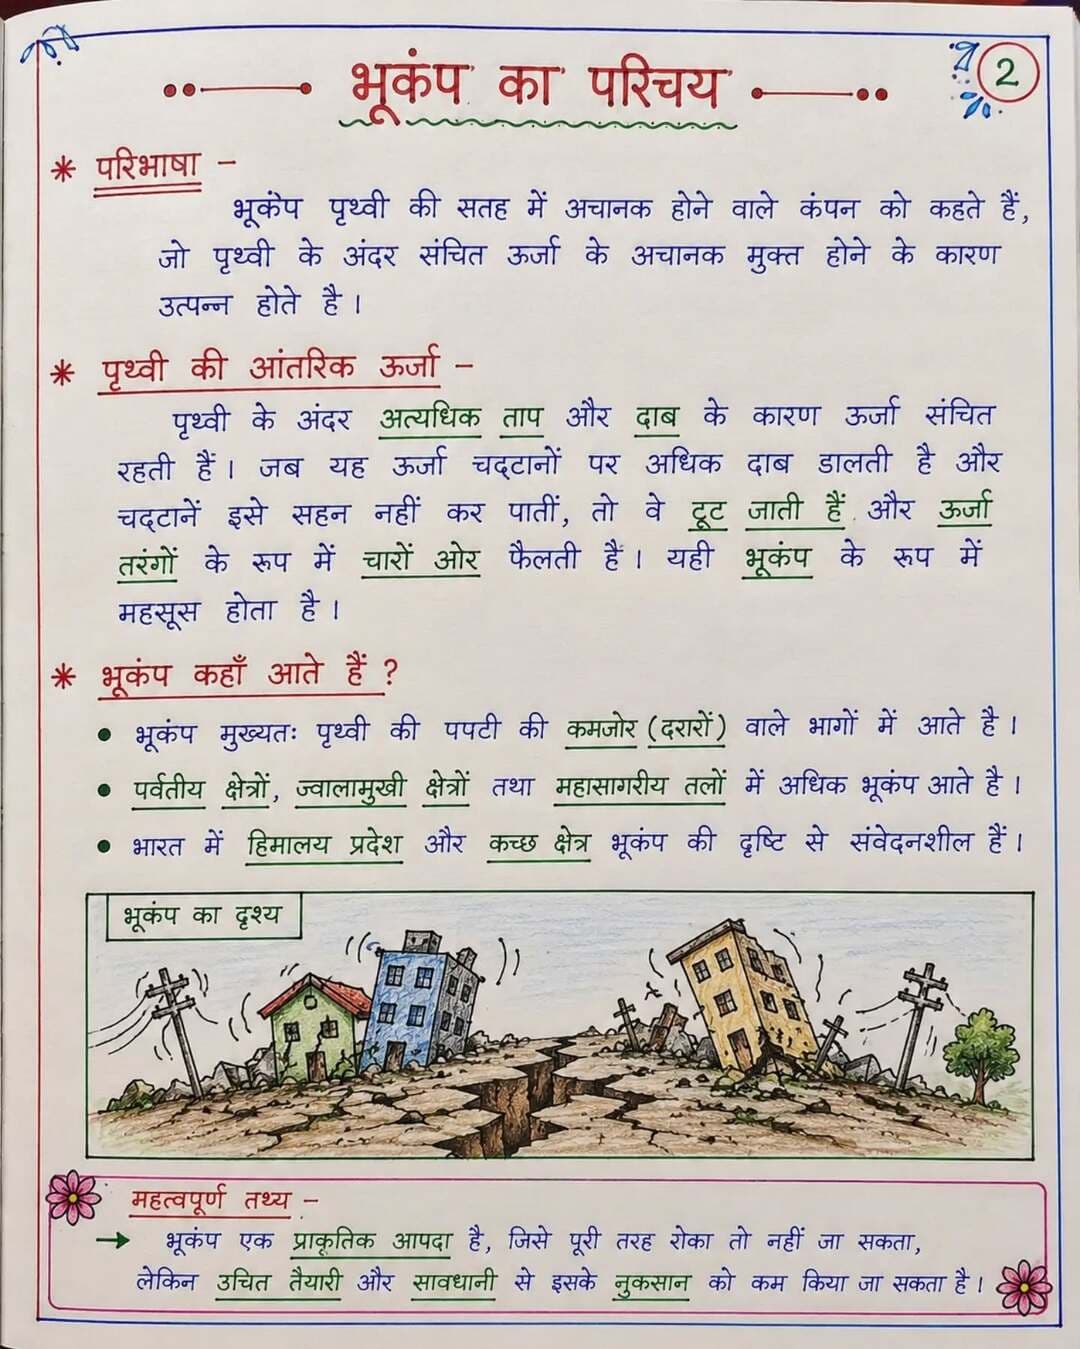 भूकंप का परिचय
2
* परिभाषा -
भूकंप पृथ्वी की सतह में अचानक होने वाले कंपन को कहते हैं,
जो पृथ्वी के अंदर संचित ऊर्जा के अचानक मुक्त होने के कारण
उत्पन्न होते है।
* पृथ्वी की आंतरिक ऊर्जा -
पृथ्वी के अंदर अत्यधिक ताप और दाब के कारण ऊर्जा संचित
रहती हैं। जब यह ऊर्जा चट्टानों पर अधिक दाब डालती है और
चट्टानें इसे सहन नहीं कर पातीं, तो वे टूट जाती हैं और ऊर्जा
तरंगों के रूप में चारों ओर फैलती हैं। यही भूकंप के रूप में
महसूस होता है।
* भूकंप कहाँ आते हैं ?
• भूकंप मुख्यतः पृथ्वी की पपटी की कमजोर (दरारों) वाले भागों में आते है।
• पर्वतीय क्षेत्रों, ज्वालामुखी क्षेत्रों तथा महासागरीय तलों में अधिक भूकंप आते है।
• भारत में हिमालय प्रदेश और कच्छ क्षेत्र भूकंप की दृष्टि से संवेदनशील हैं।
भूकंप का दृश्य
महत्वपूर्ण तथ्य -
→ भूकंप एक प्राकृतिक आपदा है, जिसे पूरी तरह रोका तो नहीं जा सकता,
लेकिन उचित तैयारी और सावधानी से इसके नुकसान को कम किया जा सकता है।